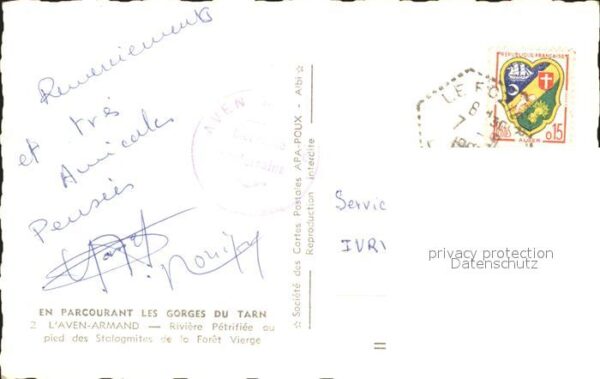 Remerciements
et très
Amicales
Pensées
EN PARCOURANT LES GORGES DU TARN
2 L'AVEN-ARMAND — Rivière Pétrifiée au
pied des Stalagmites de la Forêt Vierge
☆ Société des Cartes Postales APA-POUX - Albi ☆
Reproduction interdite
AVEN
RÉPUBLIQUE FRANÇAISE
0,15
POSTES
ALGER
Servic
IVRY
privacy protection
Datenschutz